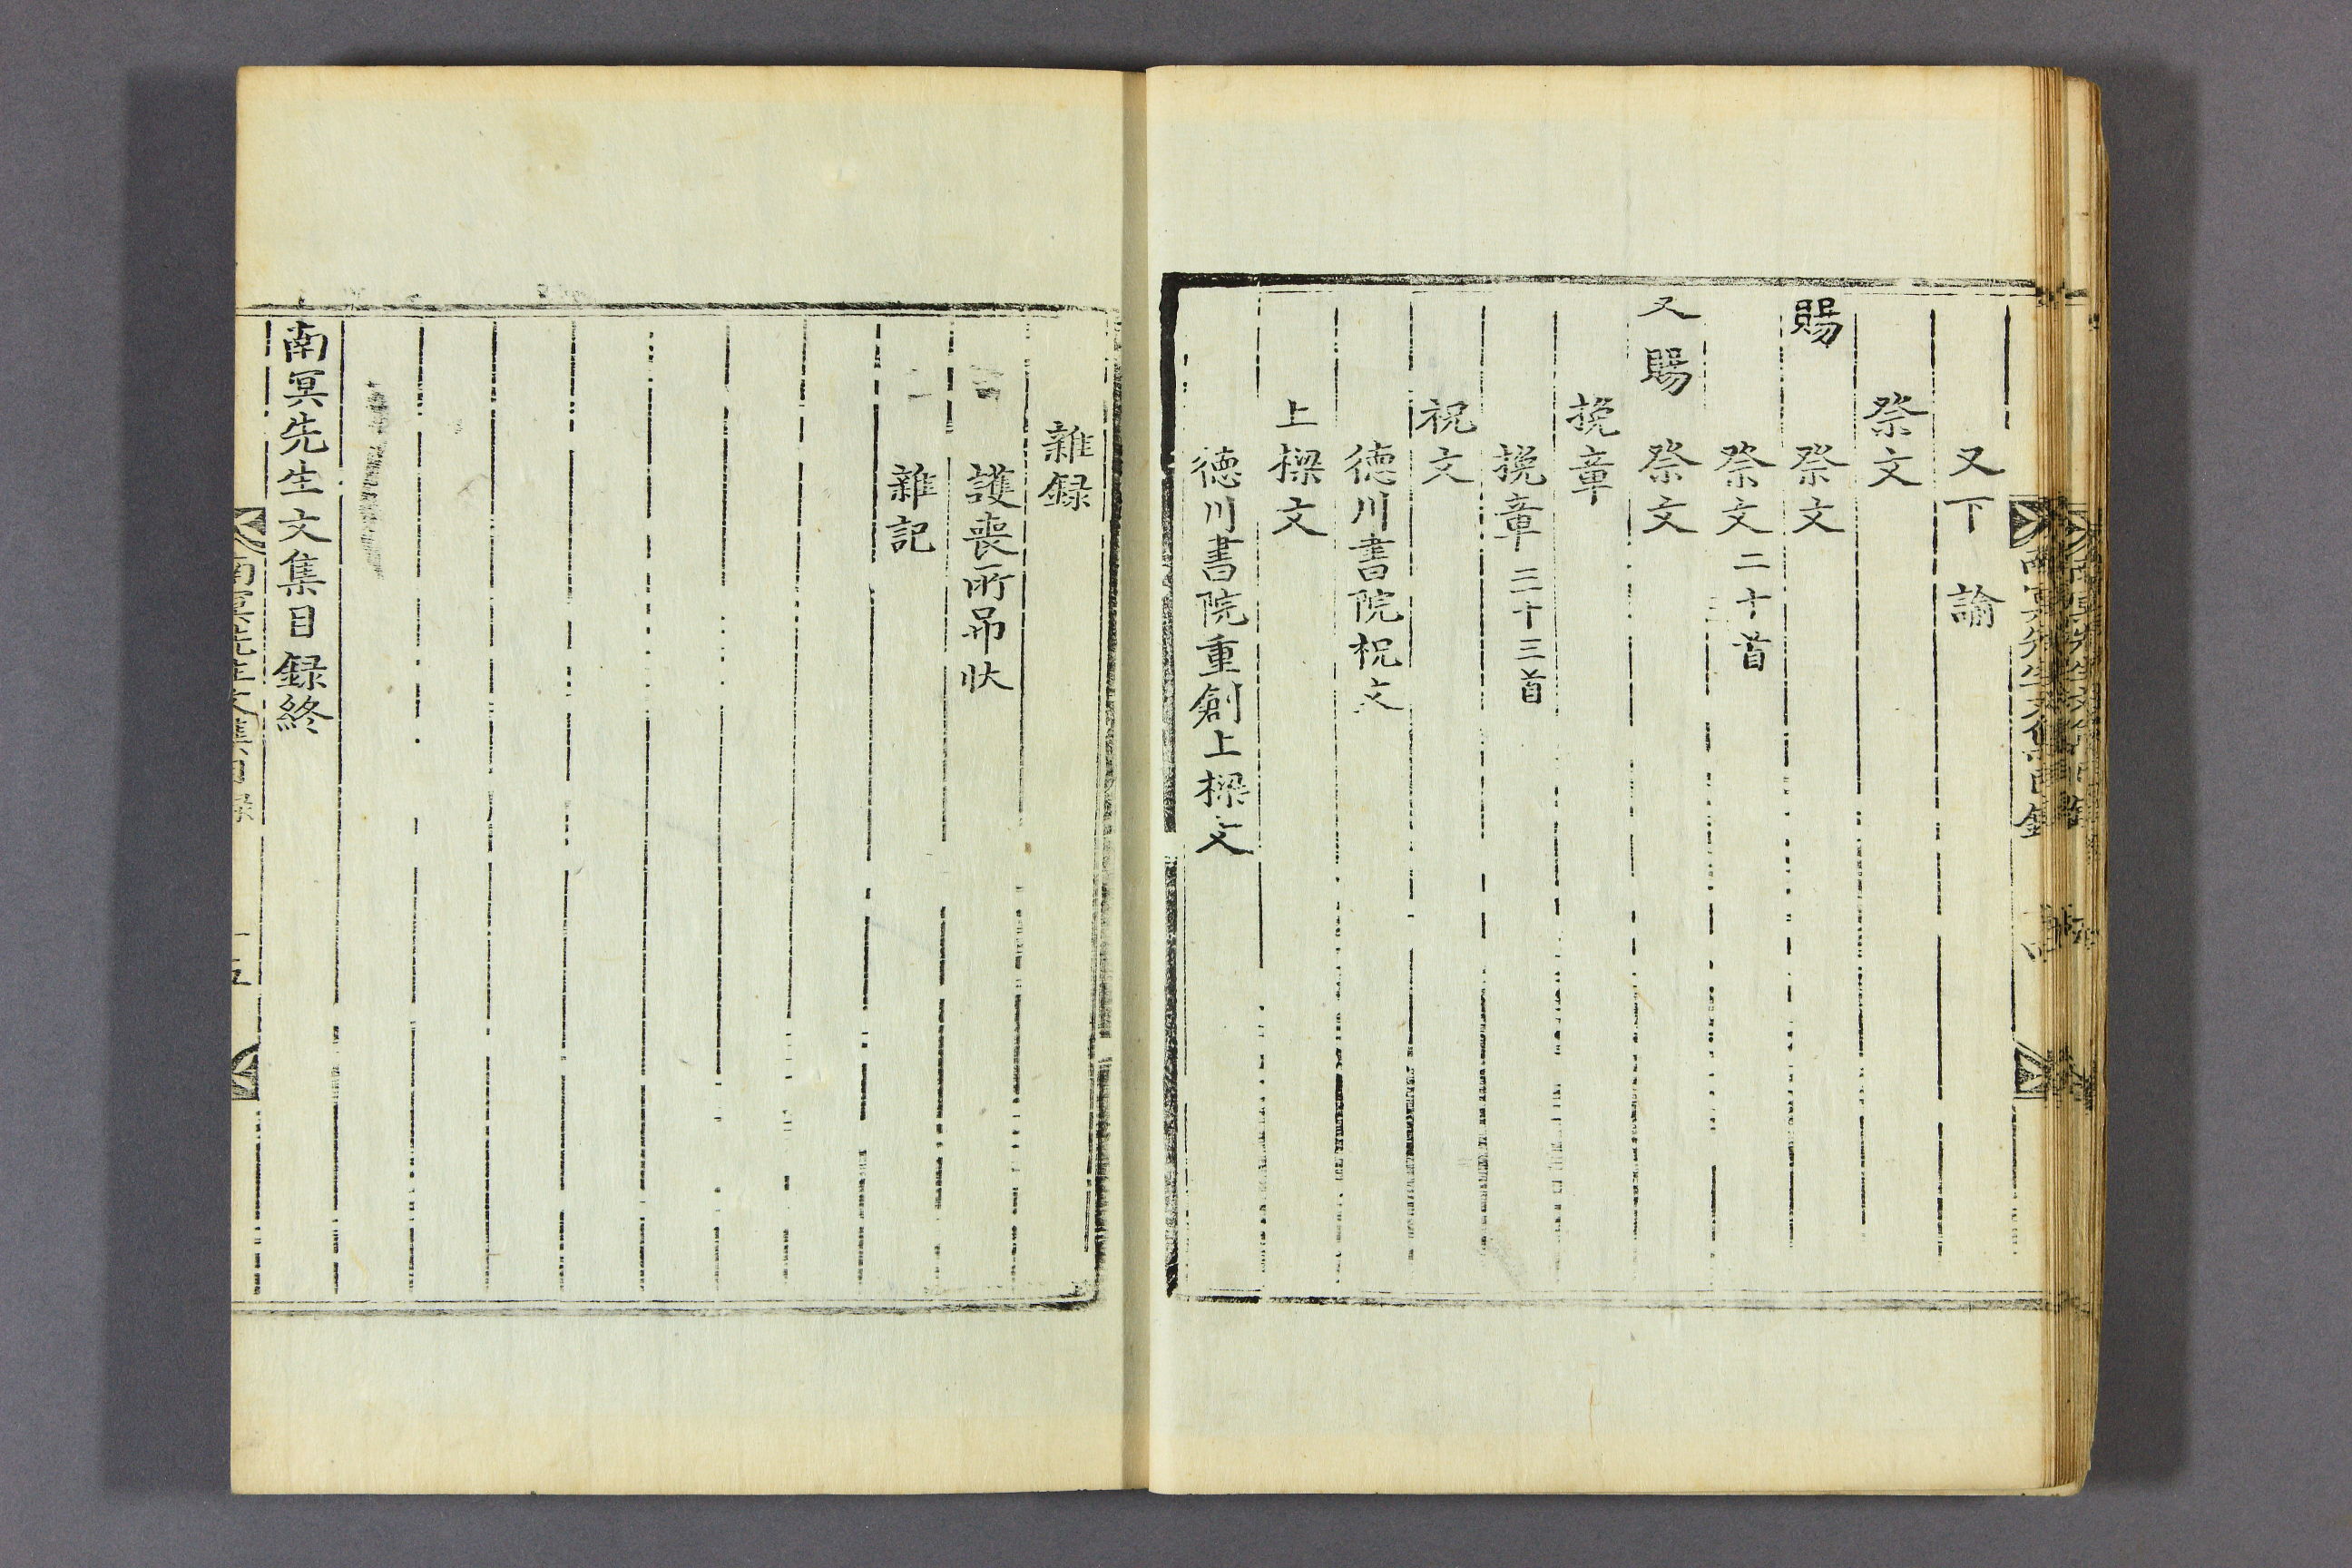 又下 諭
祭文
賜 祭文
祭文 二十首
又賜 祭文
挽章
挽章 三十三首
祝文
德川書院祝文
上樑文
德川書院重創上樑文
雜録
護喪所吊狀
雜記
南冥先生文集目録終
南冥先生文集目録 十五